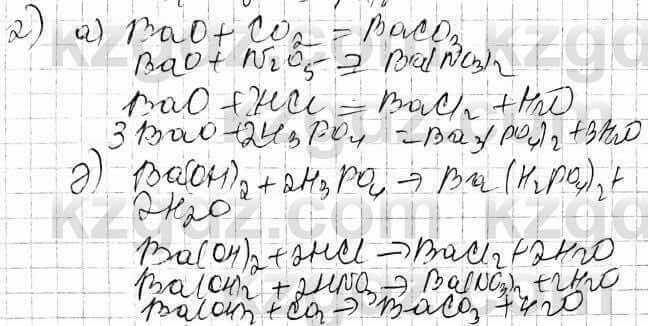 2) а) BaO + CO₂ = BaCO₃
BaO + N₂O₅ = Ba(NO₃)₂
BaO + 2HCl = BaCl₂ + H₂O
3BaO + 2H₃PO₄ = Ba₃(PO₄)₂ + 3H₂O
д) Ba(OH)₂ + 2H₃PO₄ → Ba(H₂PO₄)₂ +
2H₂O
Ba(OH)₂ + 2HCl → BaCl₂ + 2H₂O
Ba(OH)₂ + 2HNO₃ → Ba(NO₃)₂ + 2H₂O
Ba(OH)₂ + CO₂ → BaCO₃ + H₂O